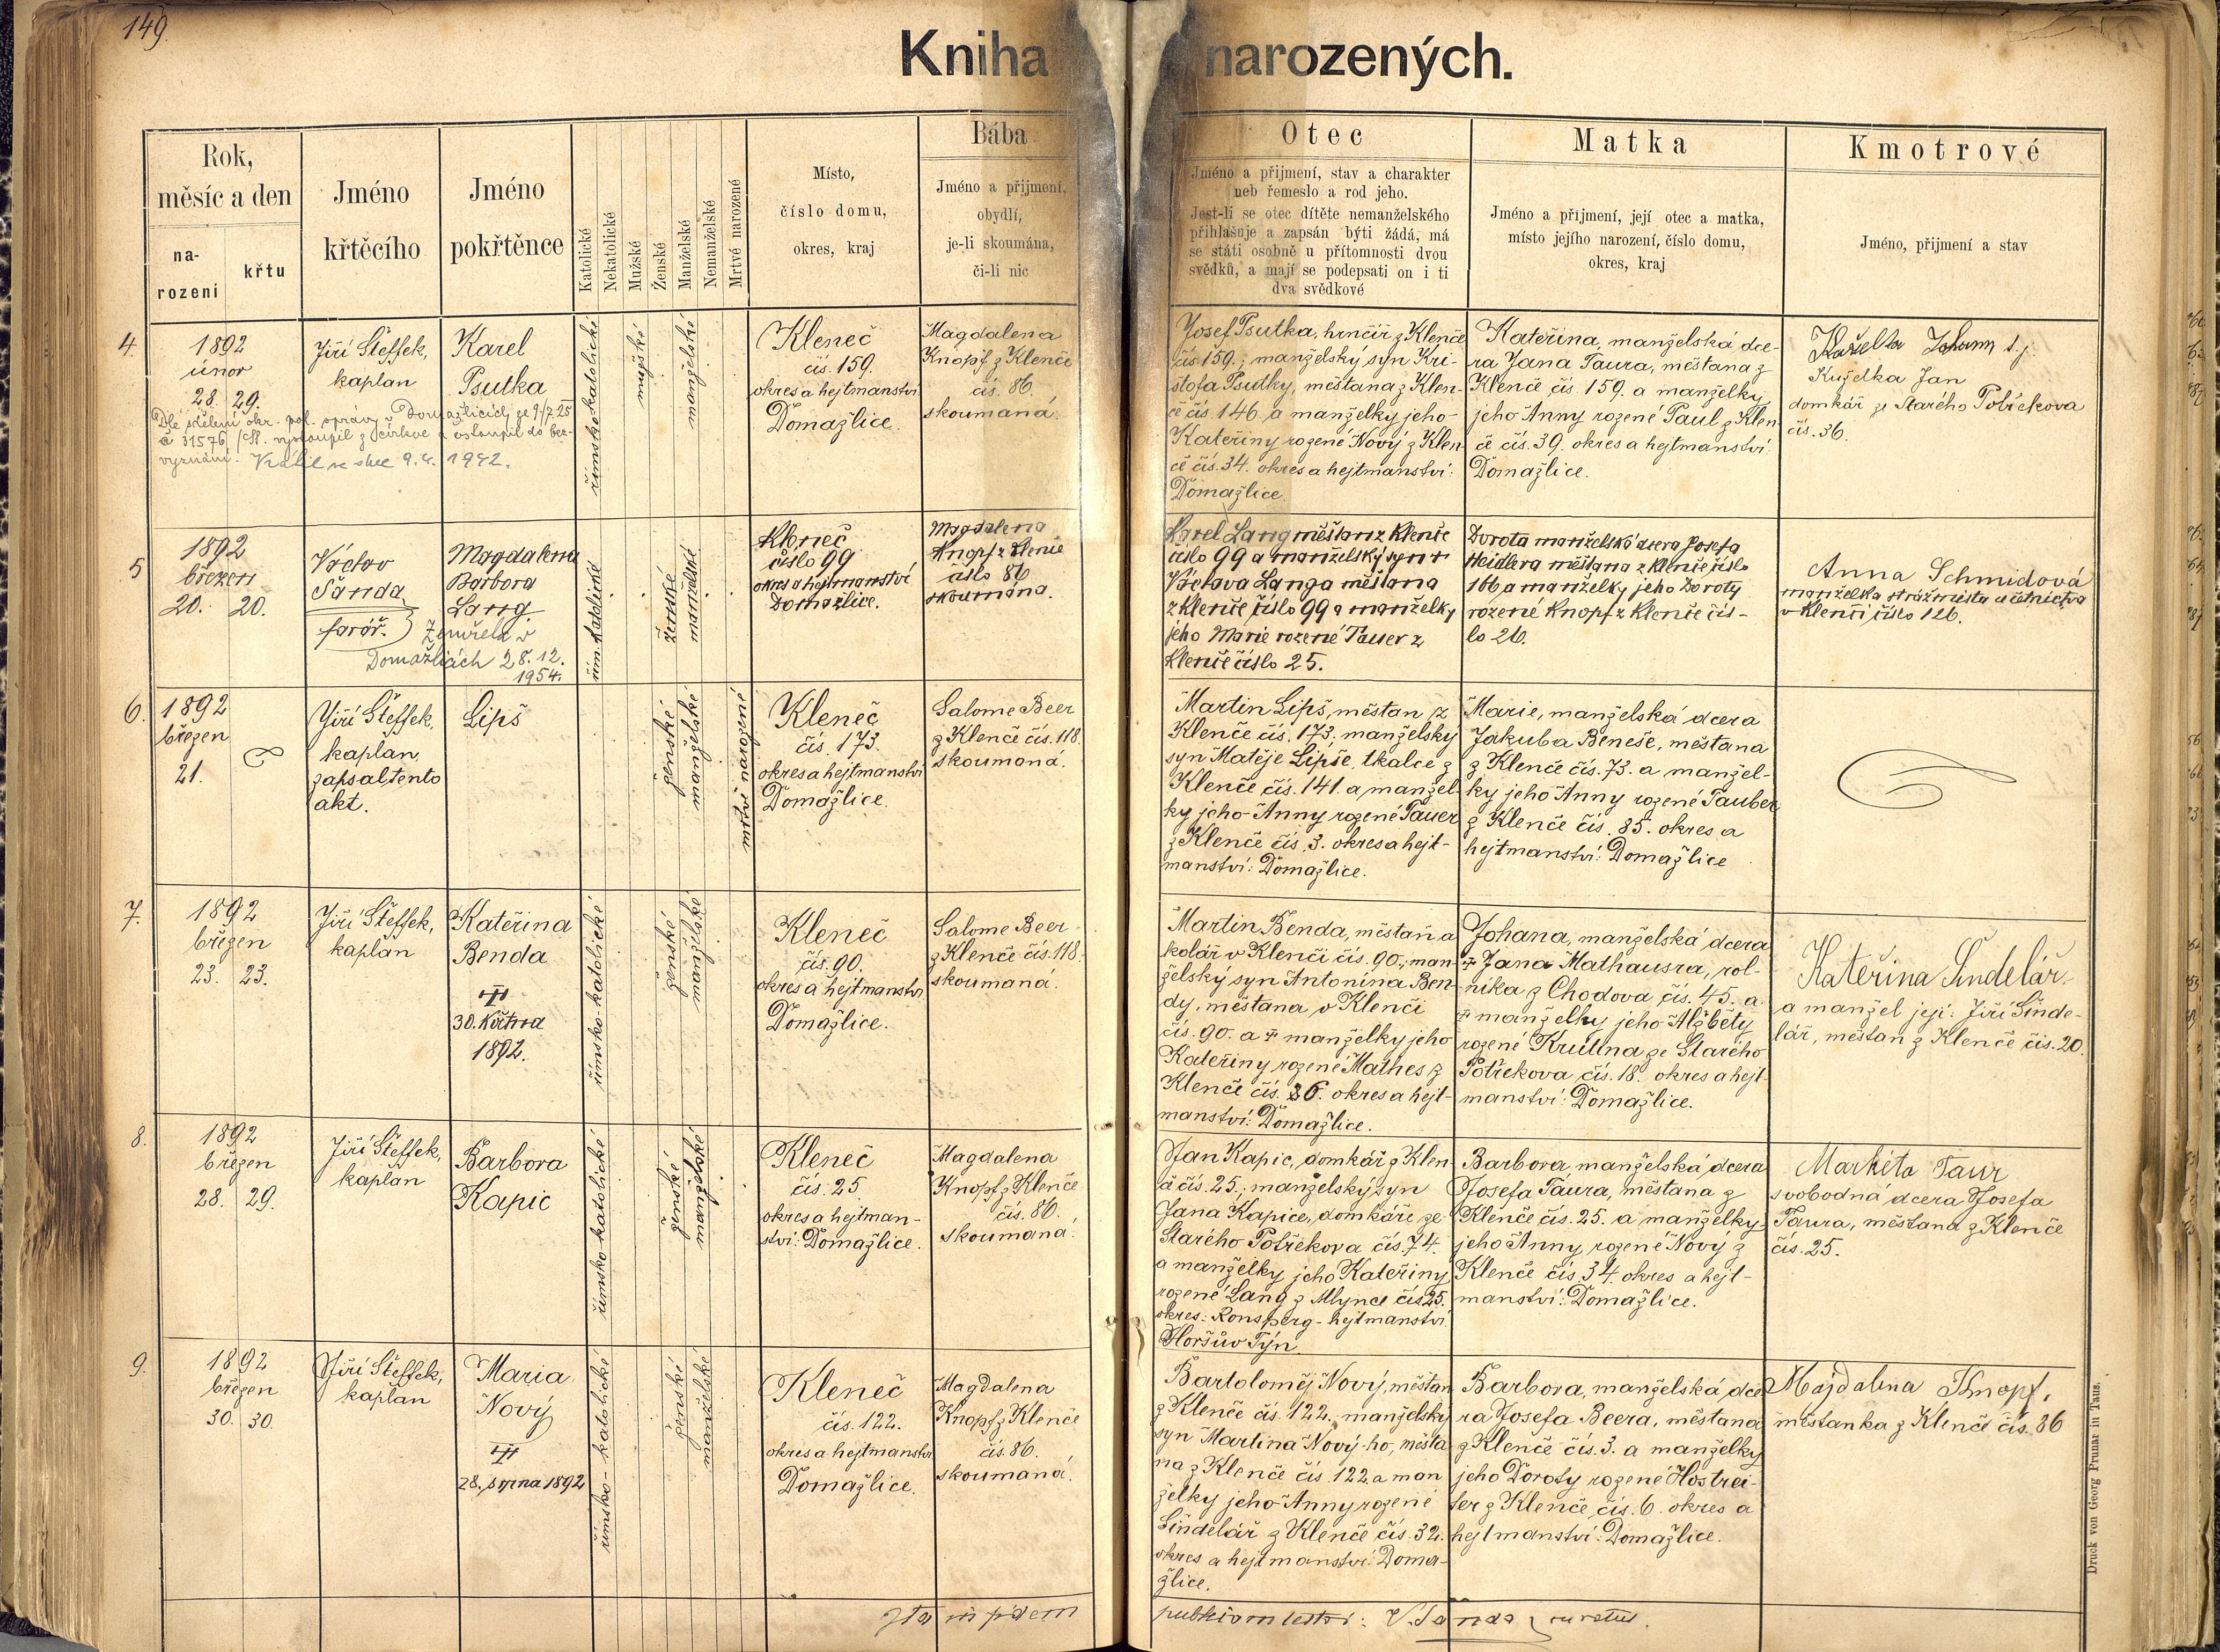 149.
Kniha narozených.
Rok,
měsíc a den
na-
rozeni
křtu
Jméno
křtěcího
Jméno
pokřtěnce
Katolické
Nekatolické
Mužské
Ženské
Manželské
Nemanželské
Mrtvé narozené
Místo,
číslo domu,
okres, kraj
Bába
Jméno a přijmení,
obydlí,
je-li skoumána,
či-li nic
Otec
Jméno a přijmení, stav a charakter
neb řemeslo a rod jeho.
Jest-li se otec dítěte nemanželského
přihlašuje a zapsán býti žádá, má
se státi osobně u přítomnosti dvou
svědků, a mají se podepsati on i ti
dva svědkové
Matka
Jméno a přijmení, její otec a matka,
místo jejího narození, číslo domu,
okres, kraj
Kmotrové
Jméno, přijmení a stav
4.
1892
únor
28. 29.
Dle sdělení okr. pol. správy v Domažlicích ze 9./7. 25
č 31576 vystoupil z církve a vstoupil do bez-
vyznání.
9.4. 1942.
Jiří Šteffek,
kaplan
Karel
Psutka
římsko-katolické
mužské
manželské
Kleneč
čís. 159.
okres a hejtmanství
Domažlice.
Magdalena
Knopf z Klenče
čís. 86.
skoumaná.
Josef Psutka, hrnčíř z Klenče
čís 159.; manželský syn Kri-
stofa Psutky, měšťana z Klen-
če čís. 146. a manželky jeho
Kateřiny rozené Nový z Klen-
če čís. 34. okres a hejtmanství:
Domažlice.
Kateřina, manželská dce-
ra Jana Taura, měšťana z
Klenče čís 159. a manželky
jeho Anny rozené Paul z Klen-
če čís. 39. okres a hejtmanství:
Domažlice.
Kuželka Johann
Kuželka Jan
domkář ze Starého Potřekova
čís. 36.
5
1892
březen
20. 20.
Václav
Šanda
farář.
Magdalena
Barbora
Lang
Zemřela v
Domažlicích 28. 12.
1954.
řím. katolické
ženské
manželské
Kleneč
číslo 99
okres a hejtmanství
Domažlice.
Magdalena
Knopf z Klenče
číslo 86
skoumána.
Karel Lang měšťan z Klenče
číslo 99 a manželský syn †
Václava Langa měšťana
z Klenče číslo 99 a manželky
jeho Marie rozené Tauer z
Klenče číslo 25.
Dorota manželská dcera Josefa
Heidlera měšťana z Klenče číslo
166 a manželky jeho Doroty
rozené Knopf z Klenče čís-
lo 26.
Anna Schmidová
manželka strážmistra u četnictva
v Klenči číslo 126.
6.
1892
březen
21.
Jiří Šteffek,
kaplan,
zapsal tento
akt.
Lipš
ženské
manželské
mrtvě narozené
Kleneč
čís. 173.
okres a hejtmanství
Domažlice.
Salome Beer
z Klenče čís. 118.
skoumaná.
Martin Lipš, měšťan z
Klenče čís. 173. manželský
syn Matěje Lipše, tkalce z
Klenče čís. 141. a manžel-
ky jeho Anny rozené Tauer
z Klenče čís. 3. okres a hejt-
manství: Domažlice.
Marie, manželská dcera
Jakuba Beneše, měšťana
z Klenče čís. 73. a manžel-
ky jeho Anny rozené Tauber
z Klenče čís. 85. okres a
hejtmanství: Domažlice
7.
1892
březen
23. 23.
Jiří Šteffek,
kaplan
Kateřina
Benda
30. Května
1892.
římsko-katolické
ženské
manželské
Kleneč
čís. 90.
okres a hejtmanství
Domažlice.
Salome Beer
z Klenče čís. 118.
skoumaná.
Martin Benda, měšťan a
kolář v Klenči čís. 90.; man-
želský syn Antonína Ben-
dy, měšťana v Klenči
čís. 90. a † manželky jeho
Kateřiny rozené Mathes z
Klenče čís. 36. okres a hejt-
manství: Domažlice.
Johana, manželská dcera
† Jana Mathausra, rol-
níka z Chodova čís. 45. a
† manželky jeho Alžběty
rozené Krutina ze Starého
Potřekova čís. 18. okres a hejt-
manství: Domažlice.
Kateřina Šindelář
a manžel její: Jiří Šinde-
lář, měšťan z Klenče čís. 20.
8.
1892
březen
28. 29.
Jiří Šteffek,
kaplan
Barbora
Kapic
římsko-katolické
ženské
manželské
Kleneč
čís. 25.
okres a hejtman-
ství: Domažlice.
Magdalena
Knopf z Klenče
čís. 86.
skoumaná.
Jan Kapic, domkář z Klen-
če čís. 25.; manželský syn
Jana Kapice, domkáře ze
Starého Potřekova čís. 74.
a manželky jeho Kateřiny
rozené Lang z Mlynce čís 25.
okres: Ronsperg - hejtmanství
Horšův Týn.
Barbora, manželská dcera
Josefa Taura, měšťana z
Klenče čís. 25. a manželky
jeho Anny rozené Nový z
Klenče čís. 34. okres a hejt-
manství: Domažlice.
Markéta Taur
svobodná dcera Josefa
Taura, měšťana z Klenče
čís. 25.
9.
1892
březen
30. 30.
Jiří Šteffek,
kaplan
Maria
Nový
28. srpna 1892
římsko-katolické
ženské
manželské
Kleneč
čís. 122.
okres a hejtmanství
Domažlice.
Magdalena
Knopf z Klenče
čís. 86.
skoumaná.
Bartoloměj Nový, měšťan
z Klenče čís. 122. manželský
syn Martina Nový-ho, měšťa-
na z Klenče čís. 122. a man-
želky jeho Anny rozené
Šindelář z Klenče čís. 32.
okres a hejtmanství: Doma-
žlice.
Barbora, manželská dce-
ra Josefa Beera, měšťana
z Klenče čís. 3. a manželky
jeho Doroty rozené Hostrei-
ter z Klenče čís. 6. okres a
hejtmanství: Domažlice.
Majdalena Knopf,
měšťanka z Klenče čís. 86
Ita in fidem publicam testor: V. Šanda, curatus.
Druck von Georg Prunar in Taus.